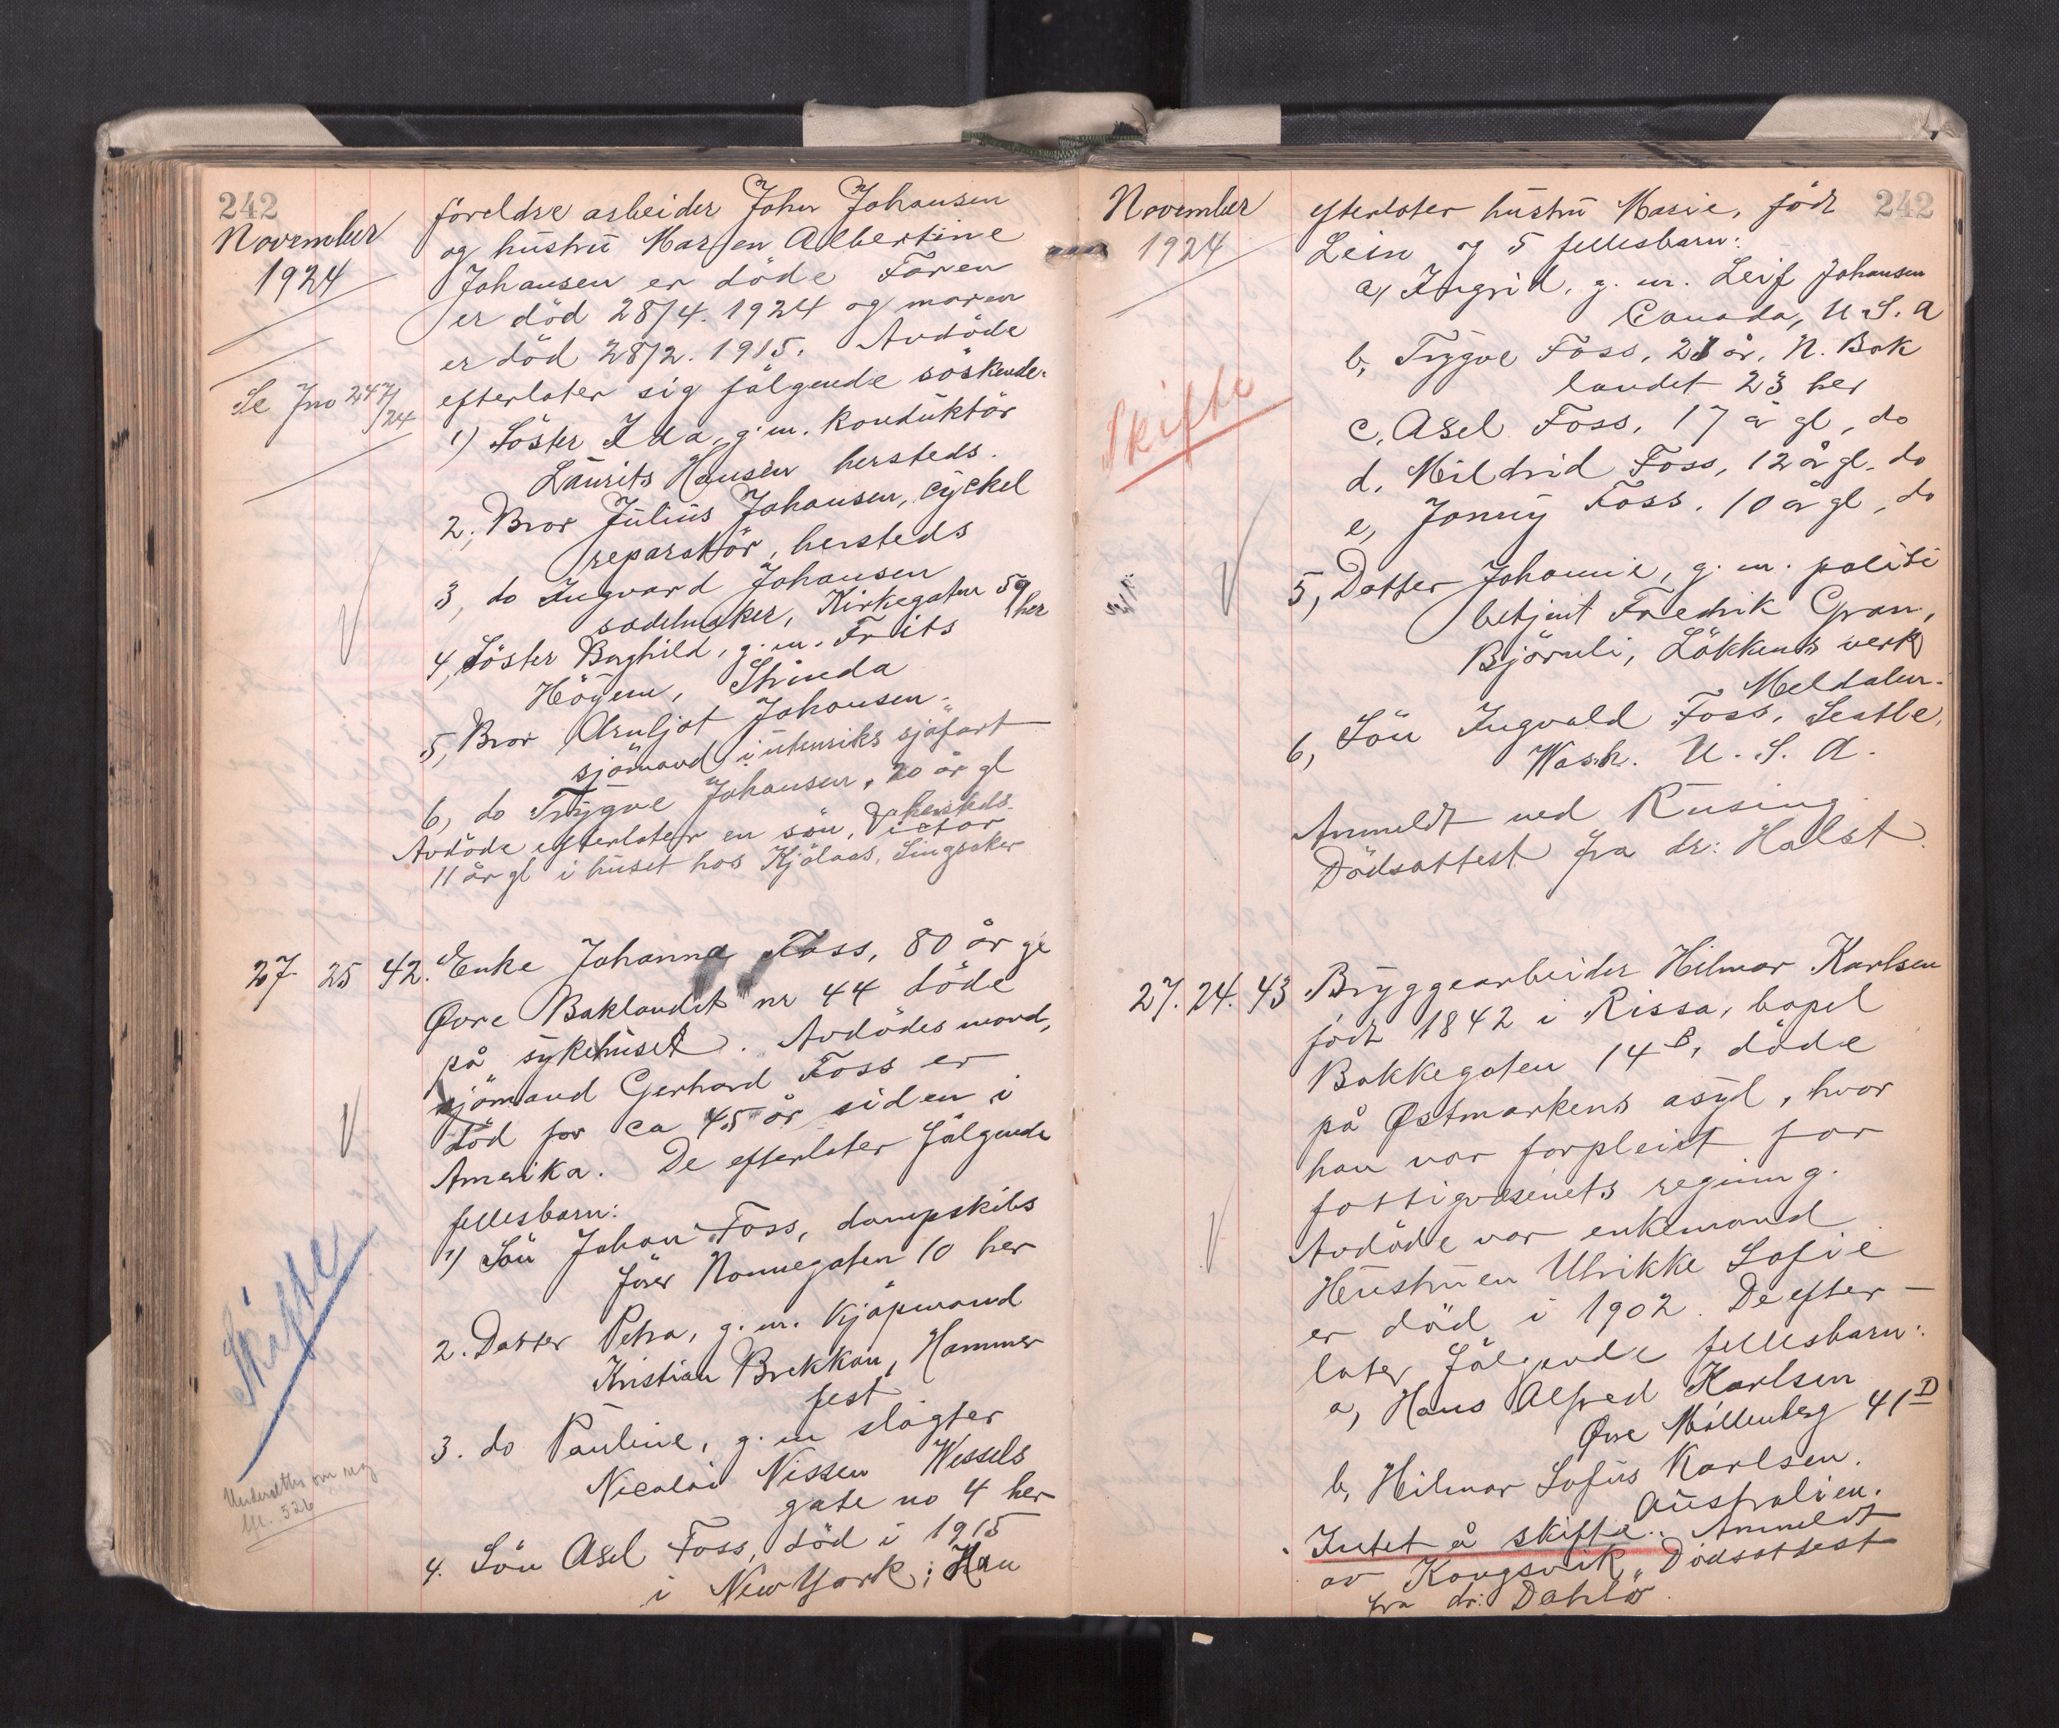 242
November
1924
Se Jno 247/24
foreldre arbeider Johan Johansen
og hustru Maren Albertine
Johansen er döde Faren
er död 28/4. 1924 og moren
er död 28/2. 1915. Avdöde
efterlater sig fölgende söskende.
1) Söster Ida, g. m. konduktör
Laurits Hansen hersteds.
2, Bror Julius Johansen, cyckel
reparatör, hersteds
3, do Ingvard Johansen
sadelmaker, Kirkegaten 59 her
4, Söster Borghild, g. m. Frits
Höyem, Strinda
5, Bror Arnljot Johansen
sjömand i utenriks sjøfart
6, do Trygve Johansen, 20 år gl
hersteds.
Avdöde efterlater en sön, Victor
11 år gl i huset hos Kjölaas, Singsaker
27 25 42. Enke Johanna Foss, 80 år gl
Øvre Baklandet nr 44 döde
på sykehuset. Avdödes mand,
sjömand Gerhard Foss er
död for ca 45 år siden i
Amerika. De efterlater fölgende
fellesbarn:
1) Sön Johan Foss, dampskibs
förer Nonnegaten 10 her
2. Datter Petra, g. m. kjöpmand
Kristian Brekkan, Hammer
fest
3. do Pauline, g. m slagter
Nicolai Nissen Wessels
gate no 4 her
4. Sön Axel Foss, död i 1915
i New York; Han
Skifte
Underrettes om
bl. 526
242
November
1924
Skifte
efterlater hustru Marie, född
Lein og 5 fellesbarn:
a, Ingrid, g. m. Leif Johansen
Canada, U. S. A
b, Trygve Foss, 21 år, N. Bak
landet 23 her
c, Axel Foss, 17 år gl, do
d, Mildrid Foss, 12 år gl, do
e, Jonny Foss, 10 år gl, do
5, Datter Johanna, g. m. politi
betjent Fredrik Gran,
Björnli, Lökkens verk
Meldalen.
6, Sön Ingvald Foss, Seatle,
Wash. U. S. A.
Anmeldt ved Rusing
Dödsattest fra dr: Holst.
27. 24. 43 Bryggearbeider Hilmar Karlsen
födt 1842 i Rissa, bopel
Bakkegaten 14B, döde
på Østmarkens asyl, hvor
han var forpleiet for
fattigvæsenets regning.
Avdöde var enkemand
Hustruen Ulrikke Sofie
er död i 1902. De efter-
later fölgende fellesbarn:
a, Hans Alfred Karlsen
Øvre Möllenberg 41D
b, Hilmar Sofus Karlsen.
Australien.
Intet å skifte. Anmeldt
av Kongsvik. Dödsattest
fra dr: Dahlö.